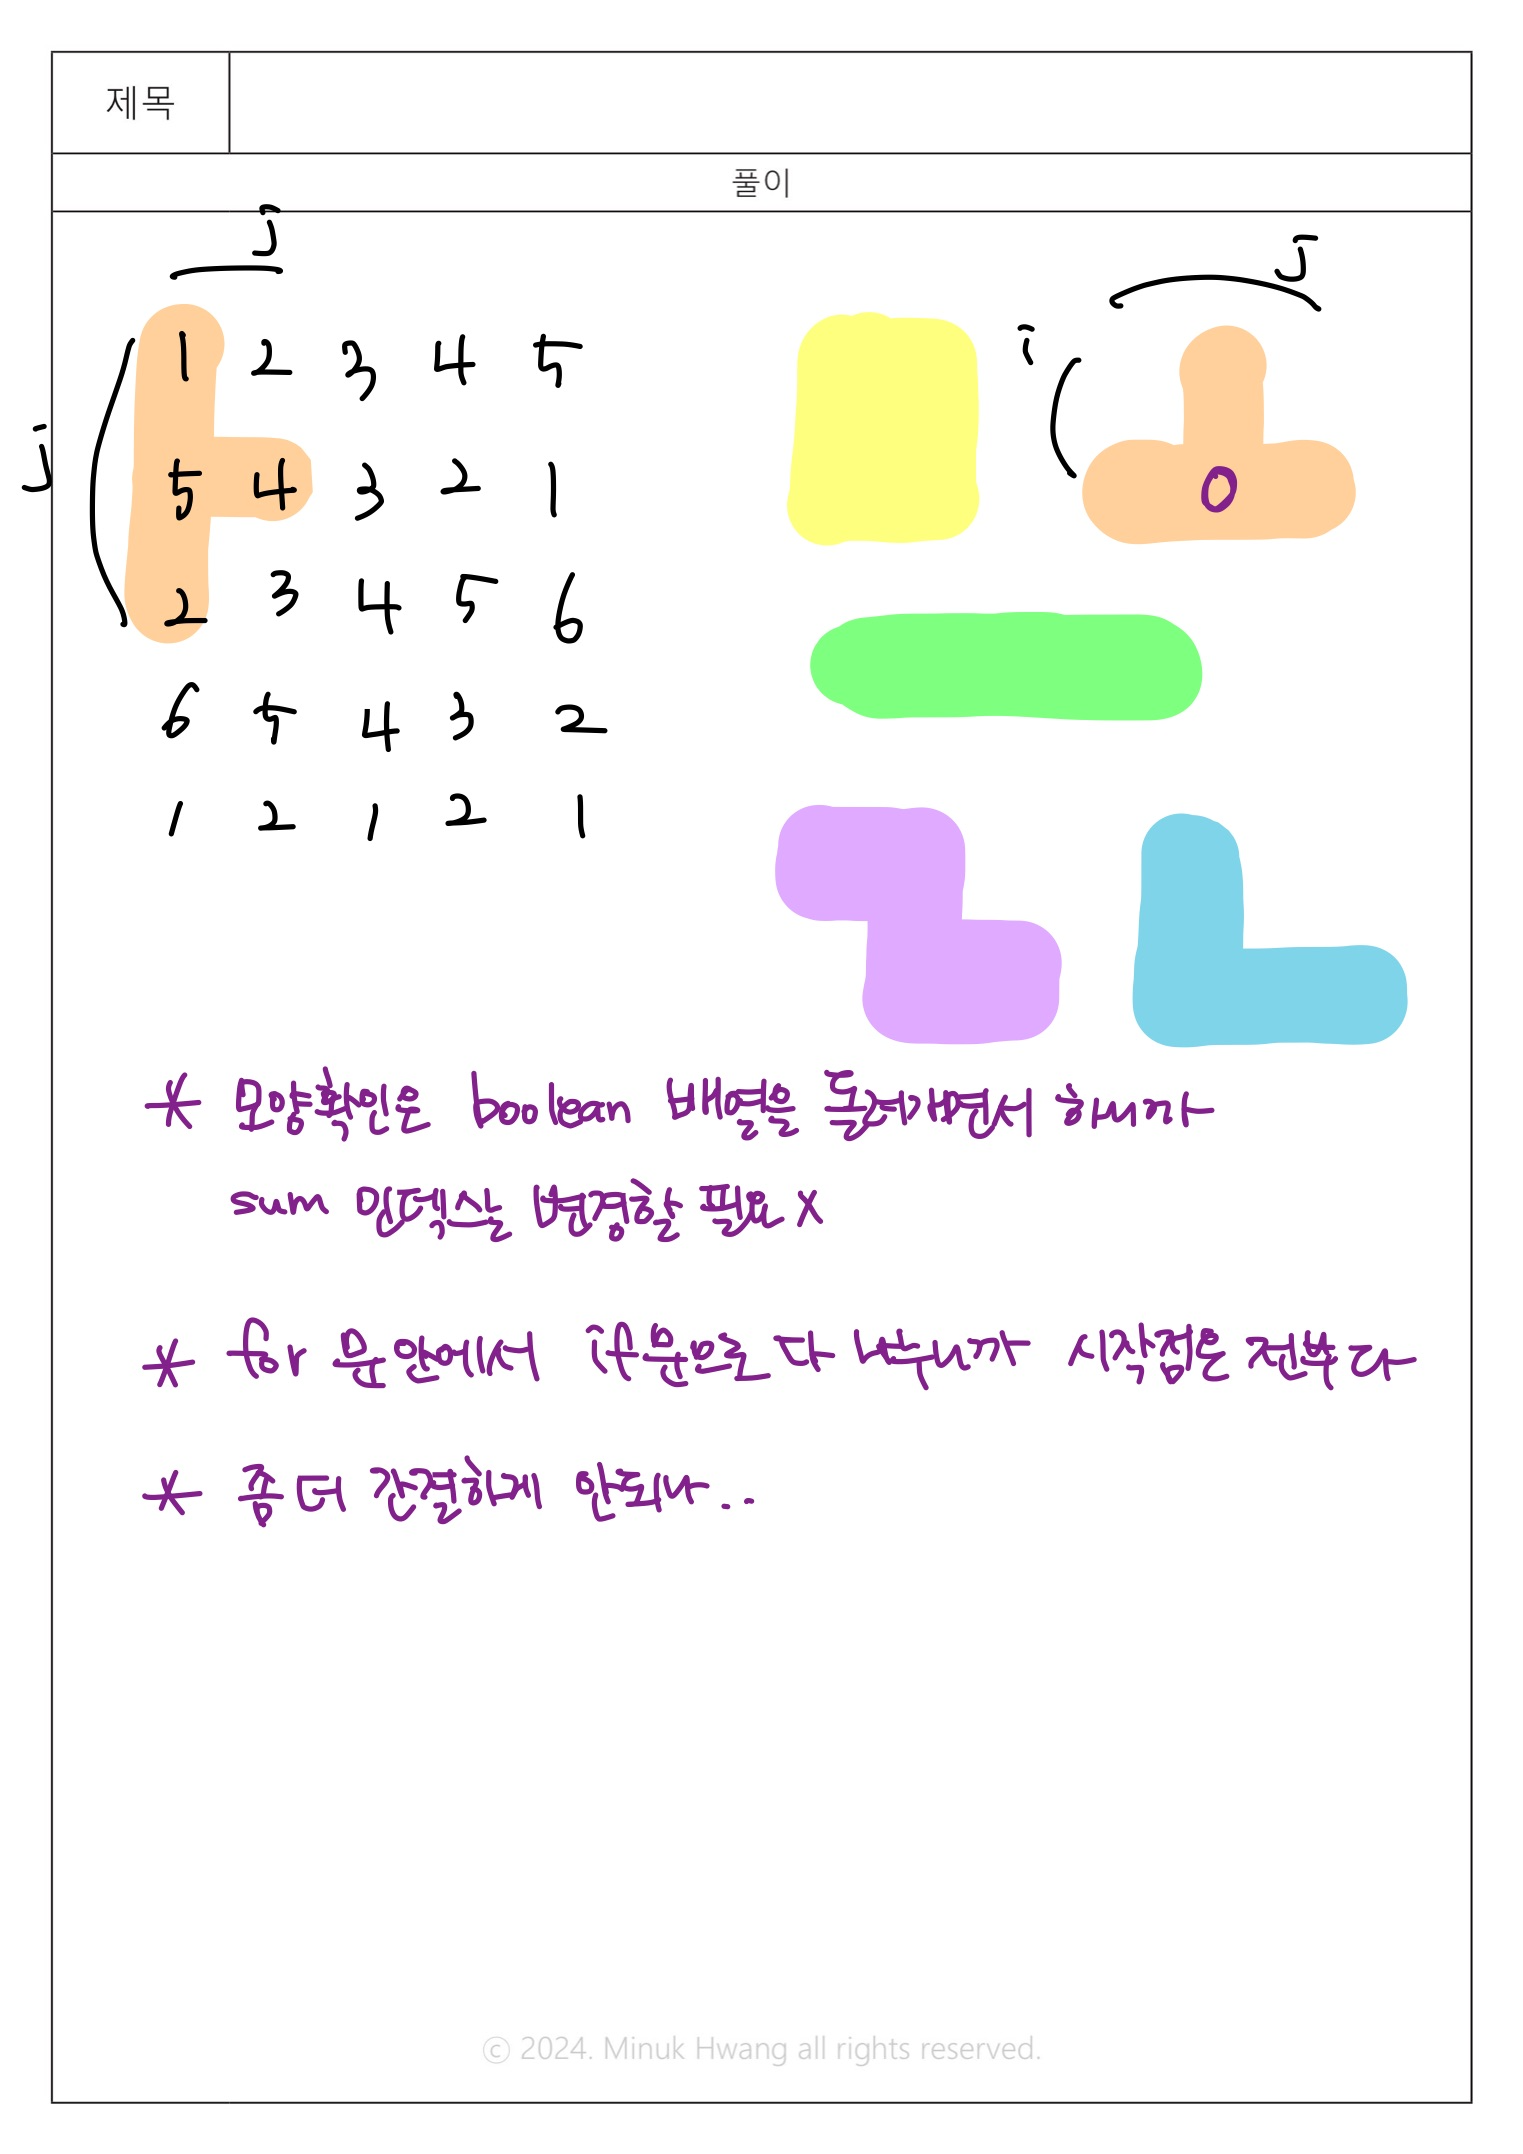 제목
풀이
j
j
i
j
1 2 3 4 5
5 4 3 2 1
0
2 3 4 5 6
6 5 4 3 2
1 2 1 2 1
* 모양확인은 boolean 배열을 돌려가면서 하니까
sum 인덱스는 변경할 필요 X
* for 문 안에서 if문으로 다 나누니까 시작점은 전부 다
* 좀 더 간결하게 안되나..
ⓒ 2024. Minuk Hwang all rights reserved.